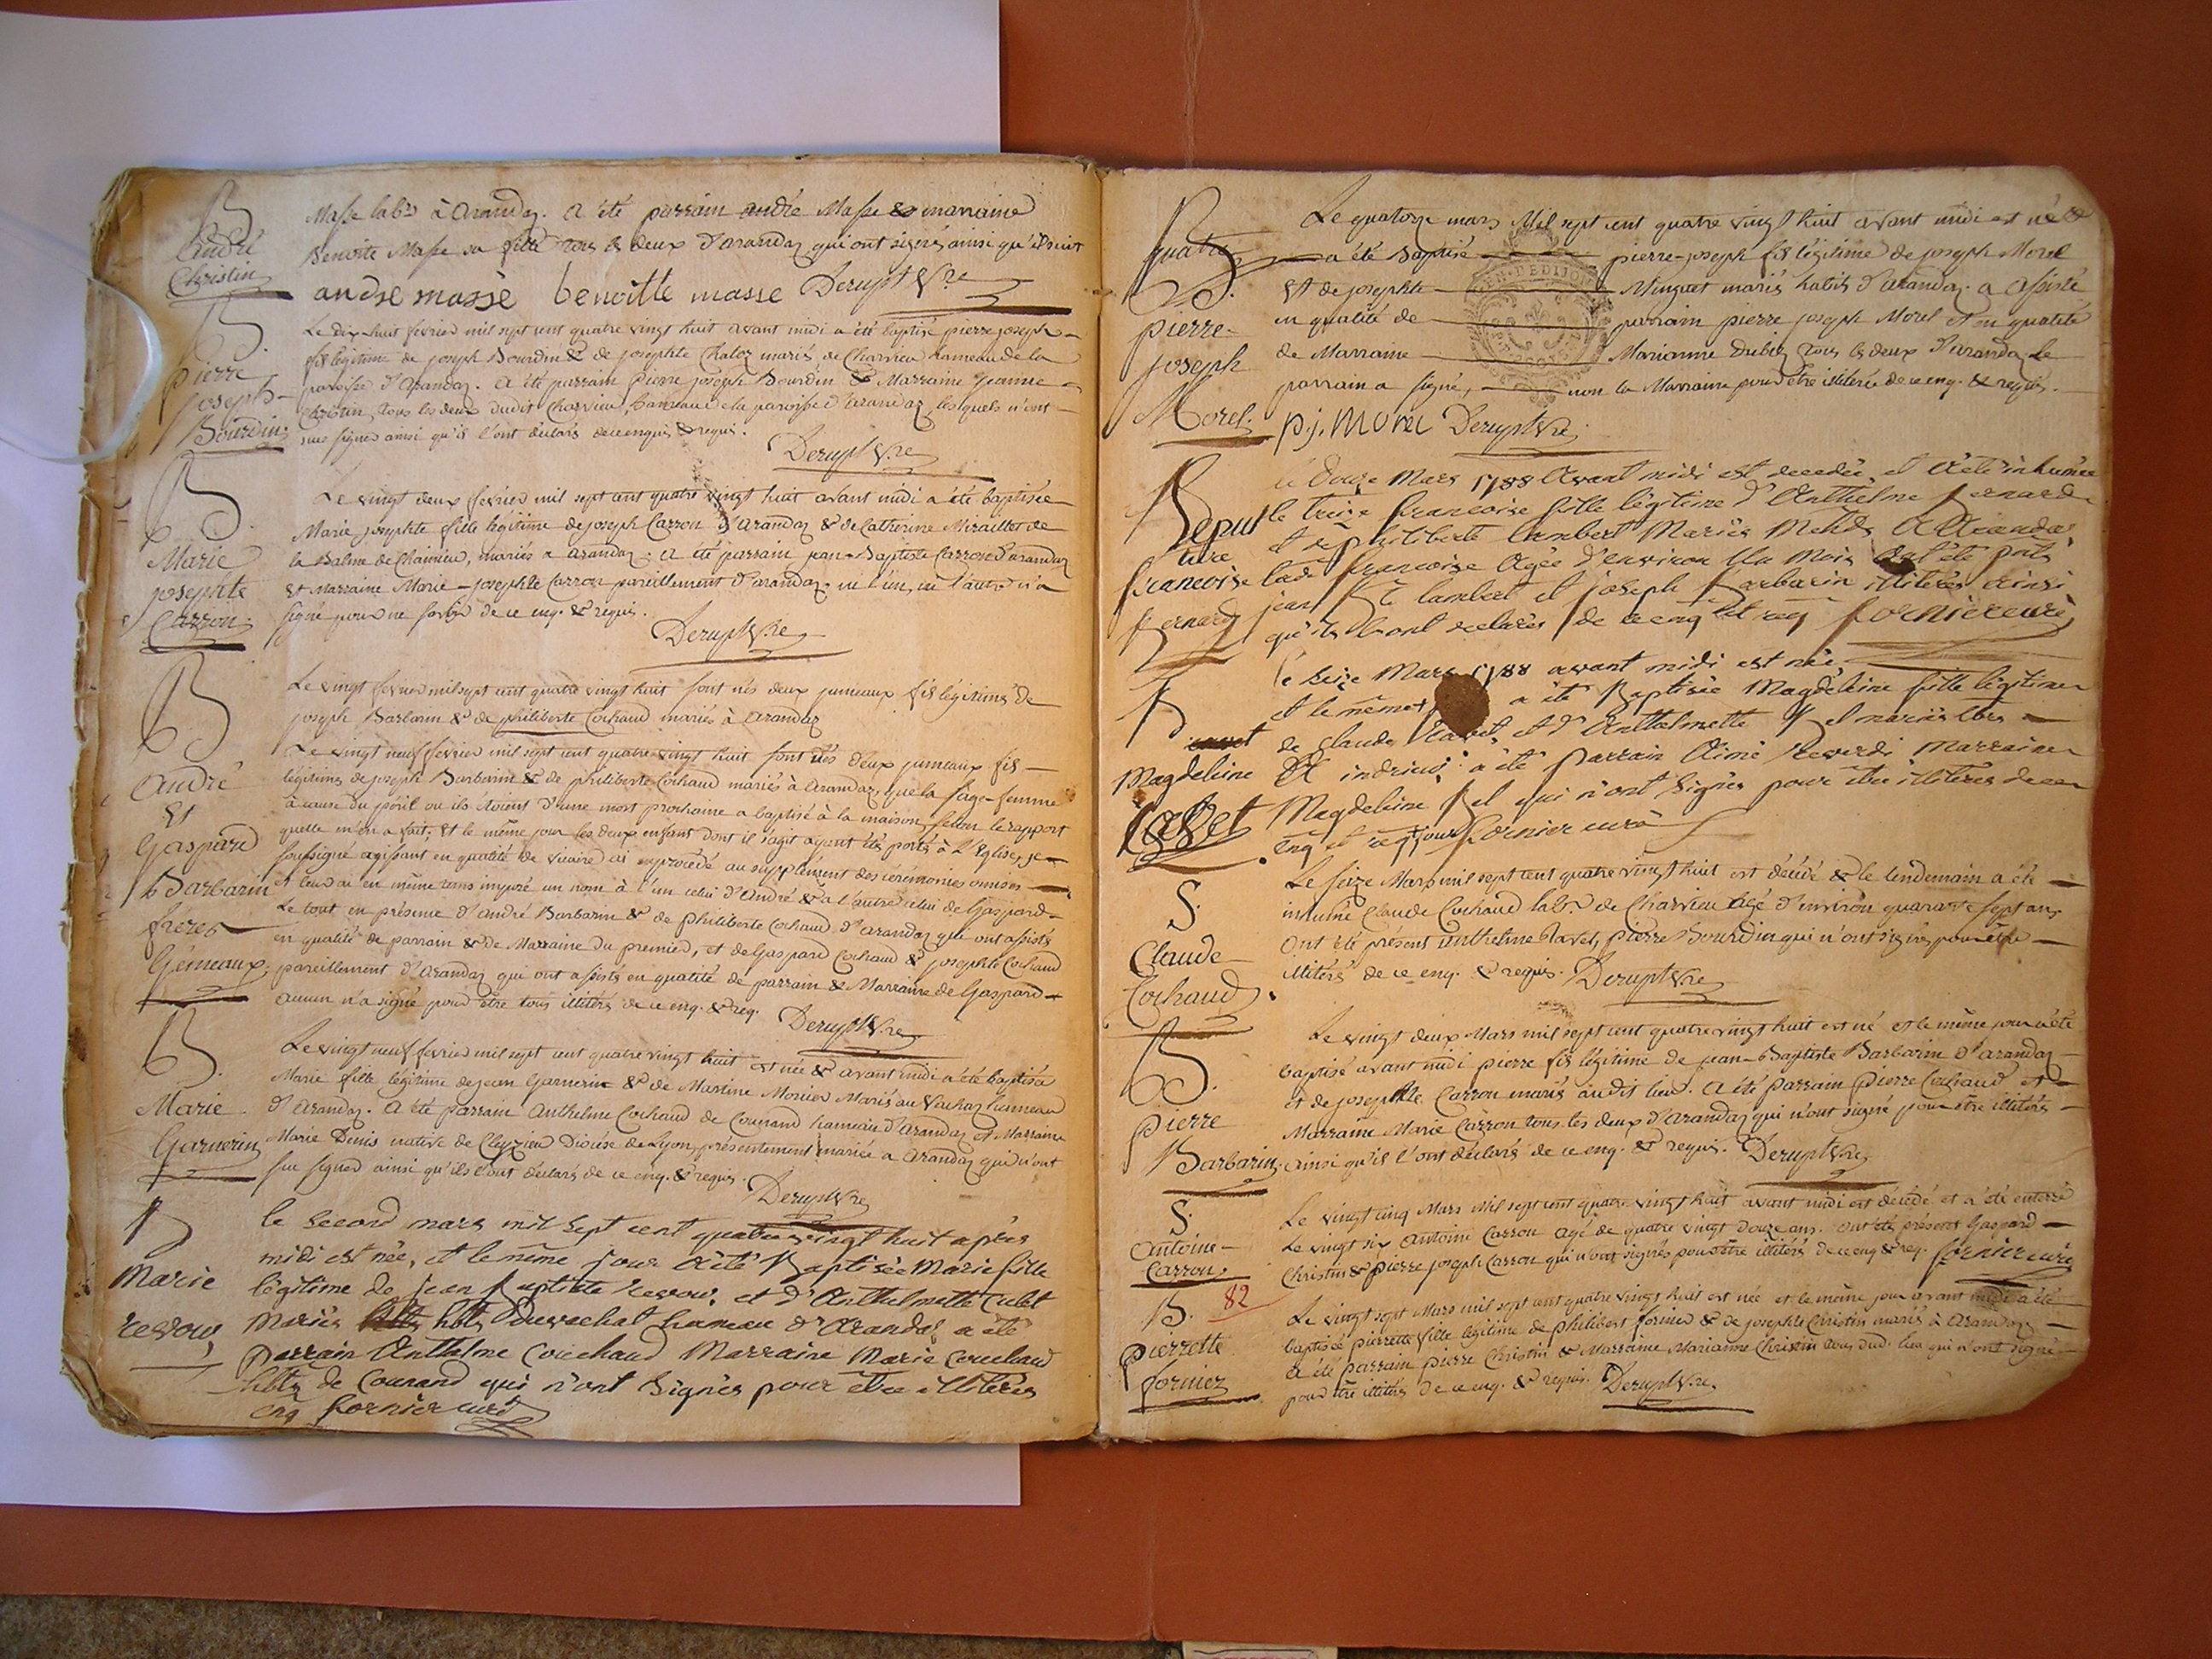 B
André
Christin
Masse labr à arandaz. a été parrain andré Masse & marraine
Benoite Masse sa fille tous les deux d'arandaz qui ont signés ainsi qu'il suit
andre massè benoitte masse Derupt Vre
B.
pierre
joseph
Bourdin.
Le dix-huit fevrier mil sept cent quatre vingt huit avant midi a été baptisé pierre joseph
fils légitime de joseph Bourdin & de josephte Chaloz mariés de Charvieu hameau de la
paroisse d'arandaz. a été parrain pierre joseph Bourdin & Marraine jeanne
christin, tous les deux dudit Charvieu, hameau de la paroisse d'arandaz, lesquels n'ont
sceu signer ainsi qu'ils l'ont déclaré de ce enquis & requis.
Derupt Vre
B.
Marie
josephte
Carron.
Le vingt deux fevrier mil sept cent quatre vingt huit avant midi a été baptisée
Marie josephte fille légitime de joseph Carron d'arandaz & de Catherine Miraillet de
la Balme de mariés a arandaz. a été parrain jean-Baptiste Carron d'arandaz
et marraine Marie-josephte Carron pareillement d'arandaz. ni l'un, ni l'autre n'a
signé pour ne savoir de ce enq. & requis.
Derupt Vre
B
Le vingt fevrier mil sept cent quatre vingt huit sont nés deux jumeaux fils légitimes de
joseph Barbarin & de philiberte Cochaud mariés à arandaz
andré
et
Gaspard
Barbarin
freres
Gémeaux.
Le vingt neuf fevrier mil sept cent quatre vingt huit sont nés deux jumeaux fils
légitimes de joseph Barbarin & de philiberte Cochaud mariés à arandaz, que la sage-femme
à cause du péril ou ils étoient d'une mort prochaine a baptisé à la maison, selon le rapport
quelle m'en a fait, et le même jour les deux enfans dont il s'agit ayant étés portés à l'Eglise, je
soussigné agissant en qualité de vicaire ai procédé au supplément des cérémonies omises
et leur ai en même tems imposé un nom à l'un celui d'André & à l'autre celui de Gaspard
Le tout en présence d'André Barbarin & de philiberte Cochaud d'arandaz qui ont assisté
en qualité de parrain & de Marraine du premier, et de Gaspard Cochaud & josephte Cochaud
pareillement d'arandaz qui ont assisté en qualité de parrain & Marraine de Gaspard
aucun n'a signé pour être tous illiterés de ce enq. & req.
Derupt Vre
B.
Marie
Garnerin
Le vingt neuf fevrier mil sept cent quatre vingt huit est née & avant midi a été baptisée
Marie fille légitime de jean Garnerin & de Martine Monier Mariés au Vachaz hameau
d'arandaz. a été parrain anthelme Cochaud de Counand hameau d'arandaz et Marraine
Marie Dinis native de Cleyzieu Diocése de Lyon, présentement mariée a arandaz qui n'ont
sceu signer ainsi qu'ils l'ont déclaré de ce enq. & requis.
Derupt Vre
B
Marie
revoux
le second mars mil sept cent quatre vingt huit après
midi est née, et le même jour a été Baptisée Marie fille
légitime de jean Baptiste revoux, et d'Anthelmette Culet
Mariés hbts duvachat hameau d'Arandas a été
parrain Anthelme Couchaud Marraine Marie Couchaud
hbts de Counand qui n'ont signés pour être illiterés
enq fornier curé
Quatre
B.
pierre-
joseph
Morel.
Le quatorze mars Mil sept cent quatre vingt huit avant midi est né &
a été Baptisé pierre-joseph fils légitime de joseph Morel
et de josephte Minguet mariés habits d'arandaz. a assisté
en qualité de parrain pierre joseph Morel et en qualité
de Marraine Marianne Dubois tous les deux d'arandaz. Le
parrain a signé, non la Marraine pour être illiterée de ce enq. & requis.
p. j. morel Derupt Vre
Sepul
ture
francoise
Bernard
le Douze Mars 1788 Avant midi est decedée, et a été inhumée
le treize francoise fille légitime d'Anthelme Bernard
et de philiberte lambert Mariés a Arandas
ladte francoise Agée d'environ Un Mois ont été prets
jean Bte lambert et joseph Barbarin illiterés ainsi
qu'ils l'ont declarés de ce enq et req fornier curé
B
Magdeleine
ravet
le seize Mars 1788 avant midi est née
et le même a été Baptisée Magdeleine fille légitime
de Claude ravet, et d'Anthelmette Bel mariés hbts
D'indrieux. a été Parrain Aimé reverdi Marraine
Magdeleine Bel qui n'ont signés pour être illiterés de ce
enq et req fornier curé
S.
Claude
Cochaud.
Le seize Mars mil sept cent quatre vingt huit est décédé & le lendemain a été
inhumé Claude Cochaud labr. de Charvieu agé d'environ quarante sept ans
ont été présent anthelme ravet, pierre Bourdin qui n'ont signés pour être
illiterés de ce enq. & requis. Derupt Vre
B.
pierre
Barbarin.
Le vingt deux Mars mil sept cent quatre vingt huit est né et le même jour a été
baptisé avant midi pierre fils légitime de jean-Baptiste Barbarin d'arandaz
et de josephte Carron mariés audit lieu. a été parrain pierre Cochaud et
Marraine Marie Carron tous les deux d'arandaz qui n'ont signé pour être illiterés
ainsi qu'ils l'ont déclaré de ce enq. & requis. Derupt Vre
S.
antoine
Carron.
Le vingt cinq Mars Mil sept cent quatre vingt huit avant midi est décédé et a été enterré
Le vingt six antoine Carron agé de quatre vingt douze ans. ont été présent Gaspard
Christin & pierre joseph Carron qui n'ont signés pour être illiterés de ce enq & req. fornier curé
B. 82
pierrette
fornier
Le vingt sept Mars mil sept cent quatre vingt huit est née et le même jour avant midi a été
baptisée pierrette fille légitime de philibert fornier & de josephte Christin mariés à arandaz
a été parrain pierre Christin & Marraine Marianne Christin tous dud. lieu qui n'ont signé
pour être illiterés de ce enq. & requis. Derupt Vre